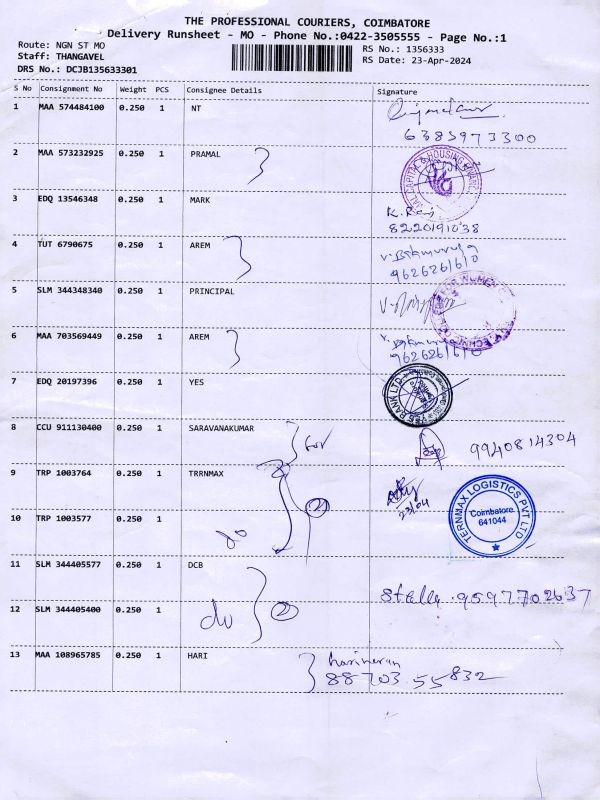 THE PROFESSIONAL COURIERS, COIMBATORE
Delivery Runsheet - MO - Phone No.:0422-3505555 - Page No.:1
Route: NGN ST MO
RS No.: 1356333
Staff: THANGAVEL
RS Date: 23-Apr-2024
DRS No.: DCJB135633301
S No Consignment No Weight PCS Consignee Details Signature
1 MAA 574484100 0.250 1 NT
6383973300
2 MAA 573232925 0.250 1 PRAMAL
CAPITAL & HOUSING
3 EDQ 13546348 0.250 1 MARK
K. Raj
8220191038
4 TUT 6790675 0.250 1 AREM
9626261610
5 SLM 344348340 0.250 1 PRINCIPAL
FOR WOMEN
6 MAA 703569449 0.250 1 AREM
9626261610
7 EDQ 20197396 0.250 1 YES
YES BANK LTD
8 CCU 911130400 0.250 1 SARAVANAKUMAR
9940814304
9 TRP 1003764 0.250 1 TRRNMAX
2
23/04
TERNMAX LOGISTICS PVT LTD
Coimbatore
641044
10 TRP 1003577 0.250 1
11 SLM 344405577 0.250 1 DCB
Stella 9597702637
12 SLM 344405400 0.250 1
2
13 MAA 108965785 0.250 1 HARI
hariharan
88703 55832